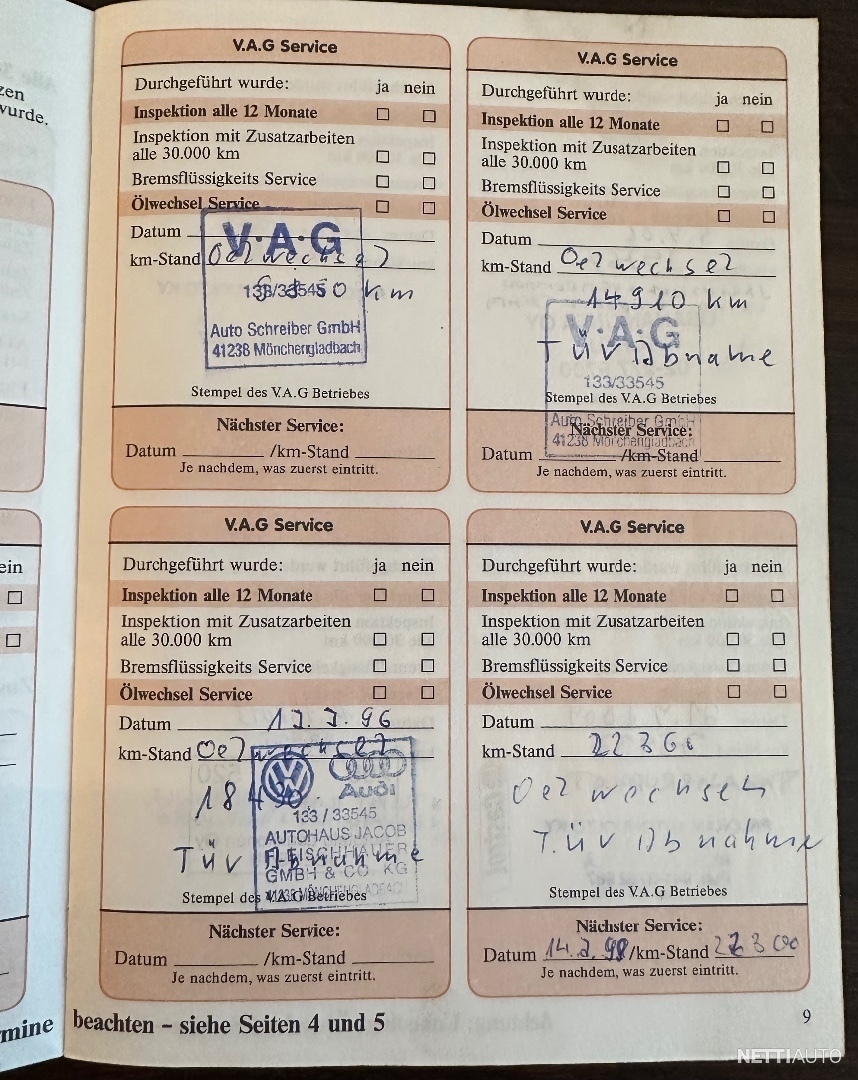 zen
wurde.
V.A.G Service
Durchgeführt wurde: ja nein
Inspektion alle 12 Monate
Inspektion mit Zusatzarbeiten
alle 30.000 km
Bremsflüssigkeits Service
Ölwechsel Service
Datum
km-Stand Oelwechsel
V·A·G
133/33545
km
Auto Schreiber GmbH
41238 Mönchengladbach
Stempel des V.A.G Betriebes
Nächster Service:
Datum /km-Stand
Je nachdem, was zuerst eintritt.
V.A.G Service
Durchgeführt wurde: ja nein
Inspektion alle 12 Monate
Inspektion mit Zusatzarbeiten
alle 30.000 km
Bremsflüssigkeits Service
Ölwechsel Service
Datum
km-Stand Oelwechsel
14910 km
V·A·G
TÜV Abname
133/33545
Stempel des V.A.G Betriebes
Auto Schreiber GmbH
Nächster Service:
41238 Mönchengladbach
Datum /km-Stand
Je nachdem, was zuerst eintritt.
ein
V.A.G Service
Durchgeführt wurde: ja nein
Inspektion alle 12 Monate
Inspektion mit Zusatzarbeiten
alle 30.000 km
Bremsflüssigkeits Service
Ölwechsel Service
Datum
km-Stand Oelwechsel
Audi
133/33545
AUTOHAUS JACOB
TÜV Abnahme
FLEISCHHAUER
GMBH & CO KG
Stempel des V.A.G Betriebes
41238 MÖNCHENGLADBACH
Nächster Service:
Datum /km-Stand
Je nachdem, was zuerst eintritt.
V.A.G Service
Durchgeführt wurde: ja nein
Inspektion alle 12 Monate
Inspektion mit Zusatzarbeiten
alle 30.000 km
Bremsflüssigkeits Service
Ölwechsel Service
Datum
km-Stand
Oelwechseln
TÜV Abnahme
Stempel des V.A.G Betriebes
Nächster Service:
Datum /km-Stand
Je nachdem, was zuerst eintritt.
mine beachten – siehe Seiten 4 und 5
9
NETTIAUTO